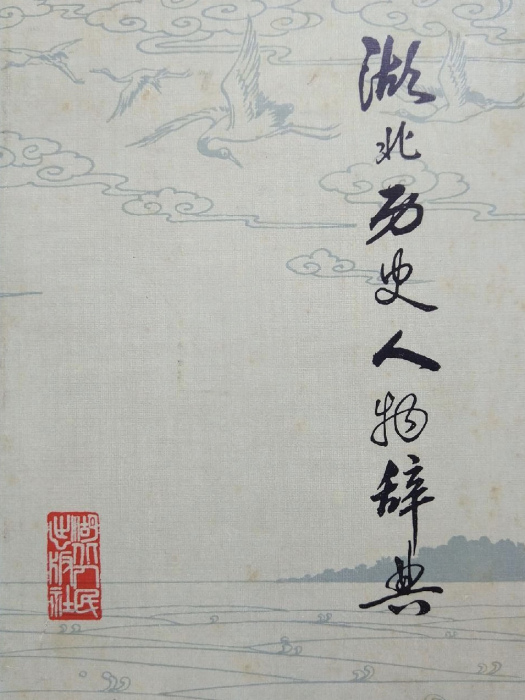 湖北历史人物辞典
湖北人民
出版社